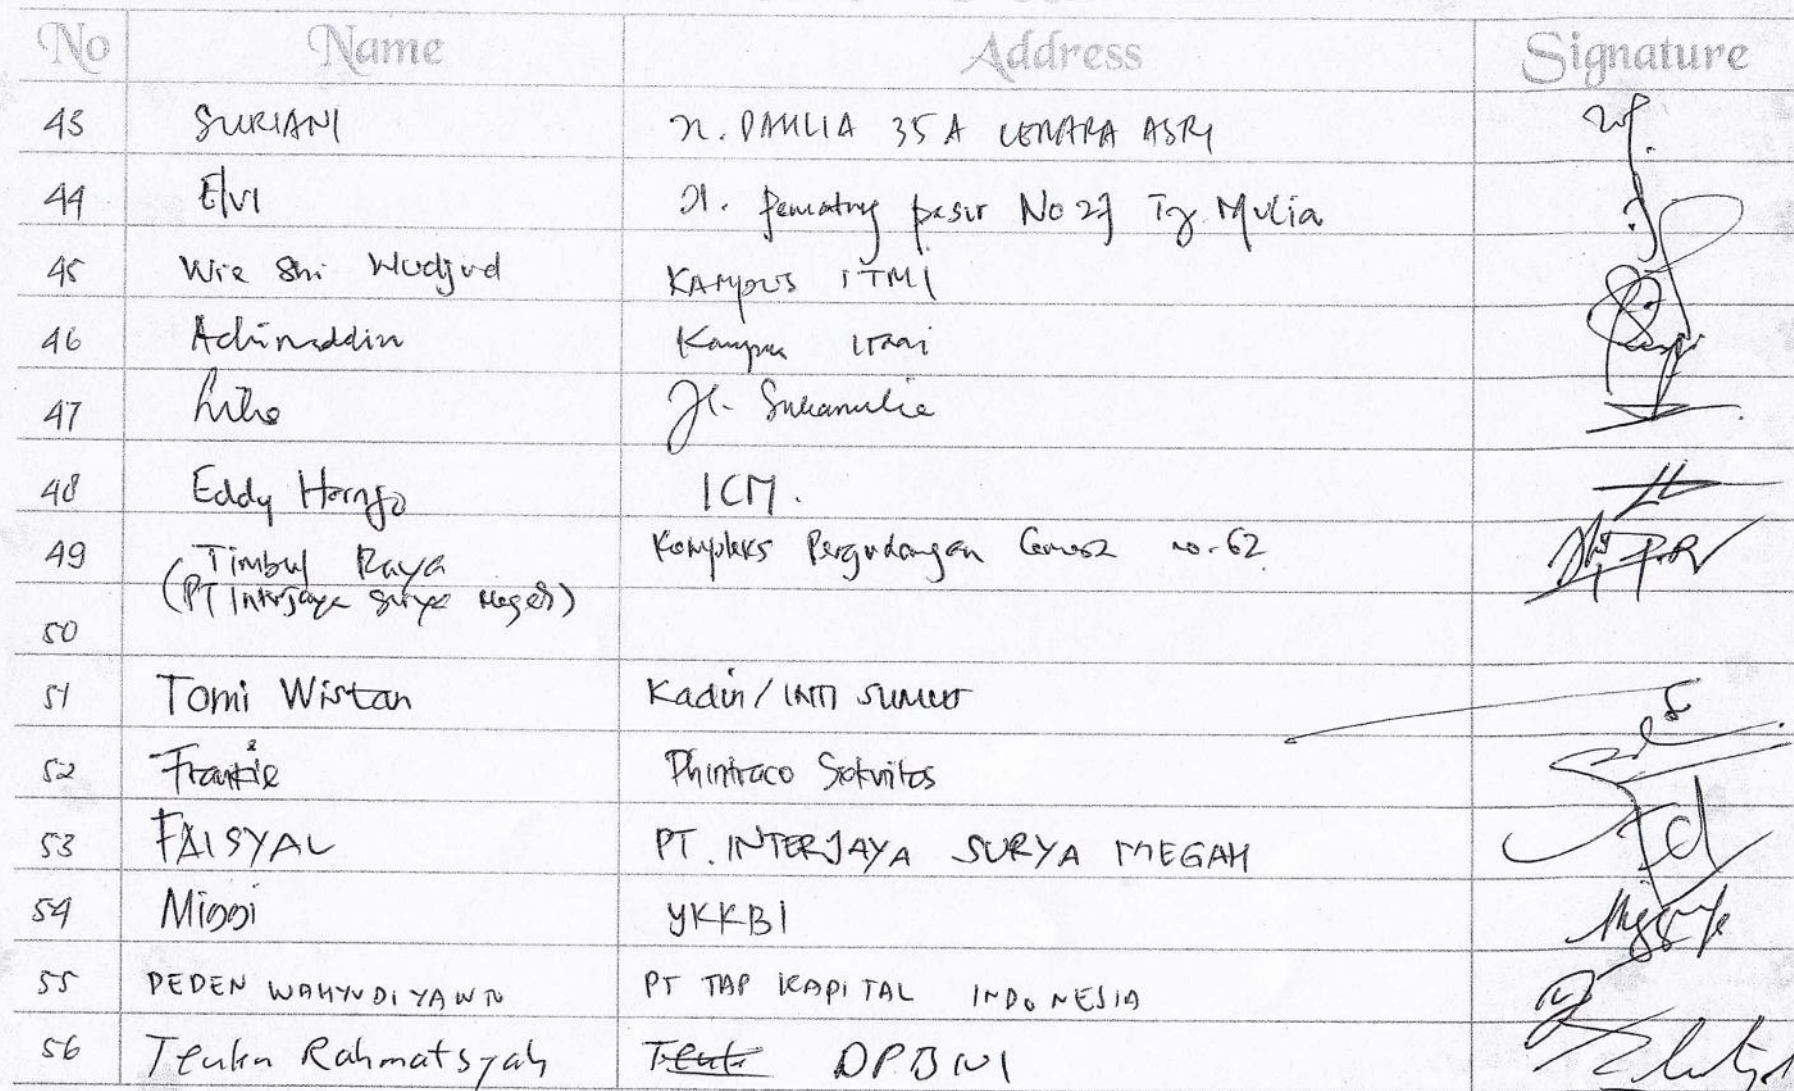 No Name Address Signature
43 SURIANI Jl. DAHLIA 35 A CEMARA ASRI
44 Elvi Jl. Pematang pasir No 27 Tg. Mulia
45 Wie Shi Wudjud KAMPUS ITMI
46 Achiruddin Kampus ITMI
47 Jl. Sukamulia
48 Eddy ICM.
49 Timbul Raya Kompleks Pergudangan no. 62
(PT Interjaya Surya Megah)
50
51 Tomi Wistan Kadin / INTI SUMUT
52 Frankie Phintraco
53 FAISYAL PT. INTERJAYA SURYA MEGAH
54 Miggi YKKBI
55 PEDEN WAHYUDIYANTO PT TAP KAPITAL INDONESIA
56 Teuku Rahmatsyah DPBNI